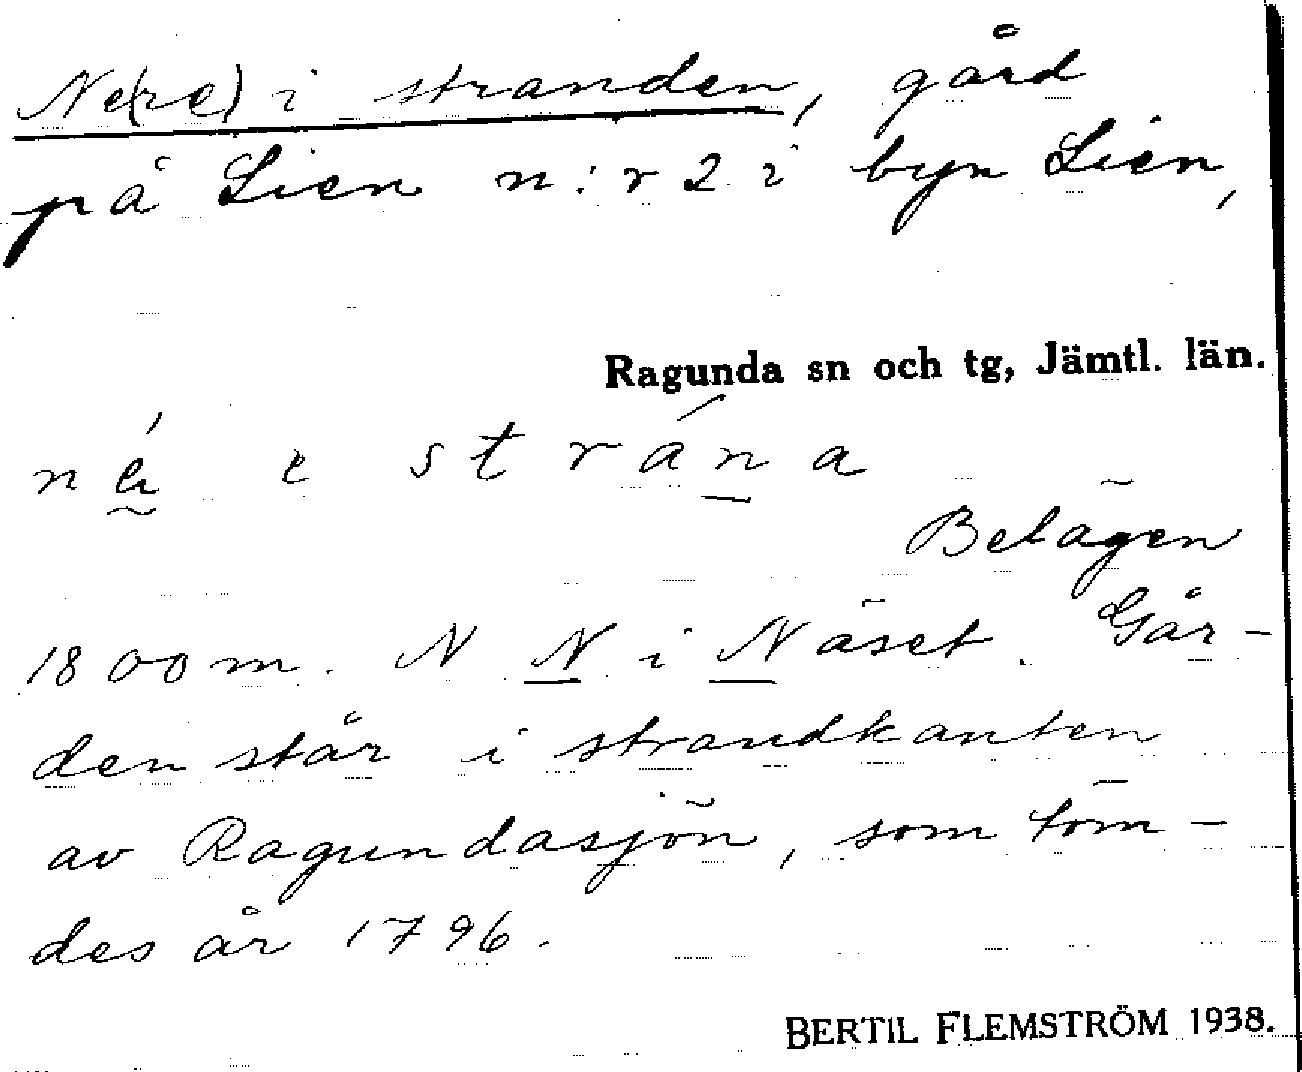 Ne(re) i stranden, gård
på Lien n:r 2 i byn Lien,
Ragunda sn och tg, Jämtl. län.
e strána
Belägen
1800 m. N N i Näset. Går-
den står i strandkanten
av Ragundasjön, som töm-
des år 1796.
BERTIL FLEMSTRÖM 1938.